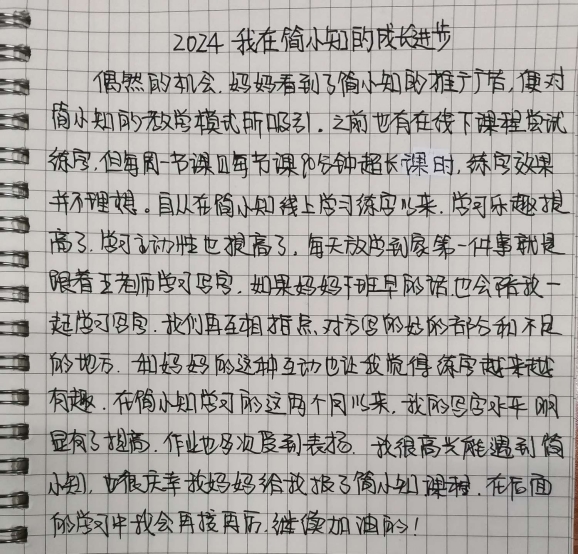 2024 我在简小知的成长进步
偶然的机会,妈妈看到了简小知的推广广告,便对
简小知的教学模式所吸引。之前也有在线下课程尝试
练字,但每周一节课且每节课90分钟超长课时,练字效果
并不理想。自从在简小知线上学习练字以来,学习乐趣提
高了,学习主动性也提高了,每天放学到家第一件事就是
跟着王老师学习写字,如果妈妈下班早的话也会陪我一
起学习写字,我们再互相指点对方写的好的部分和不足
的地方,和妈妈的这种互动也让我觉得练字越来越
有趣。在简小知学习的这两个月以来,我的写字水平明
显有了提高,作业也多次受到表扬。我很高兴能遇到简
小知,也很庆幸我妈妈给我报了简小知课程,在后面
的学习中我会再接再厉,继续加油的!